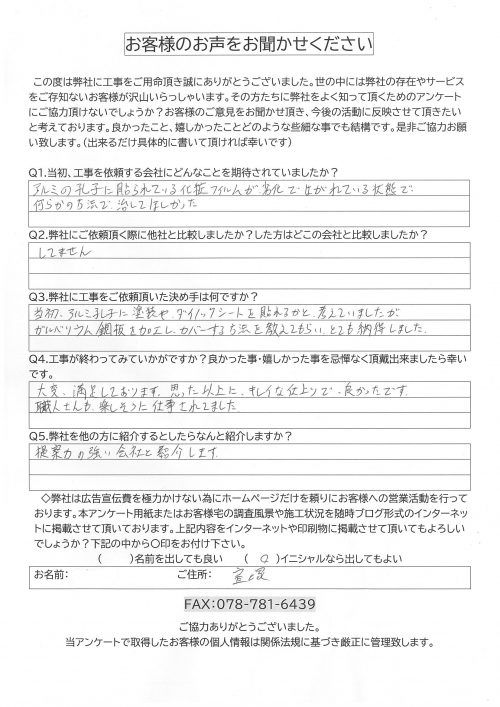 お客様のお声をお聞かせください
この度は弊社に工事をご用命頂き誠にありがとうございました。世の中には弊社の存在やサービス
をご存知ないお客様が沢山いらっしゃいます。その方たちに弊社をよく知って頂くためのアンケート
にご協力頂けないでしょうか？お客様のご意見をお聞かせ頂き、今後の活動に反映させて頂きたい
と考えております。良かったこと、嬉しかったことどのような些細な事でも結構です。是非ご協力お願
い致します。（出来るだけ具体的に書いて頂ければ幸いです）
Q1.当初、工事を依頼する会社にどんなことを期待されていましたか？
アルミの孔子に貼られている化粧フィルムが劣化ではがれている状態で
何らかの方法で、治してほしかった
Q2.弊社にご依頼頂く際に他社と比較しましたか？した方はどこの会社と比較しましたか？
してません
Q3.弊社に工事をご依頼頂いた決め手は何ですか？
当初、アルミ孔子に塗装や、ダイノックシートを貼れるかと、考えていましたが
ガルバリウム鋼板を加工し、カバーする方法を教えてもらい、とても納得しました。
Q4.工事が終わってみていかがですか？良かった事・嬉しかった事を忌憚なく頂戴出来ましたら幸い
です。
大変、満足しております。思った以上に、キレイな仕上りで、良かったです。
職人さんも、楽しそうに仕事されてました
Q5.弊社を他の方に紹介するとしたらなんと紹介しますか？
提案力の強い会社と紹介します。
◇弊社は広告宣伝費を極力かけない為にホームページだけを頼りにお客様への営業活動を行って
おります。本アンケート用紙またはお客様宅の調査風景や施工状況を随時ブログ形式のインターネッ
トに掲載させて頂いております。上記内容をインターネットや印刷物に掲載させて頂いてもよろしい
でしょうか？下記の中から〇印をお付け下さい。
（　　）名前を出しても良い　（ 〇 ）イニシャルなら出してもよい
お名前：　ご住所：
FAX：078-781-6439
ご協力ありがとうございました。
当アンケートで取得したお客様の個人情報は関係法規に基づき厳正に管理致します。